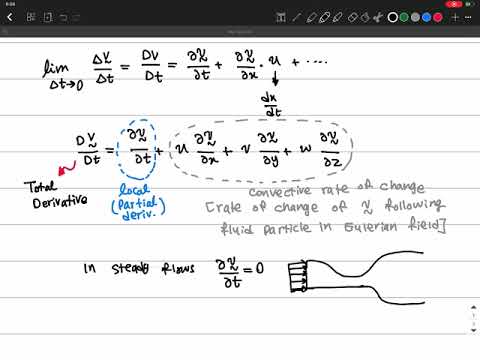 lim Δt→0 ΔV/Δt = DV/Dt = ∂V/∂t + ∂V/∂x · u + ....
dx/dt
DV/Dt = ∂V/∂t + u ∂V/∂x + v ∂V/∂y + w ∂V/∂z
Total Derivative
local (Partial deriv.)
convective rate of change
[rate of change of V following
fluid particle in Eulerian field]
In steady flows ∂V/∂t = 0